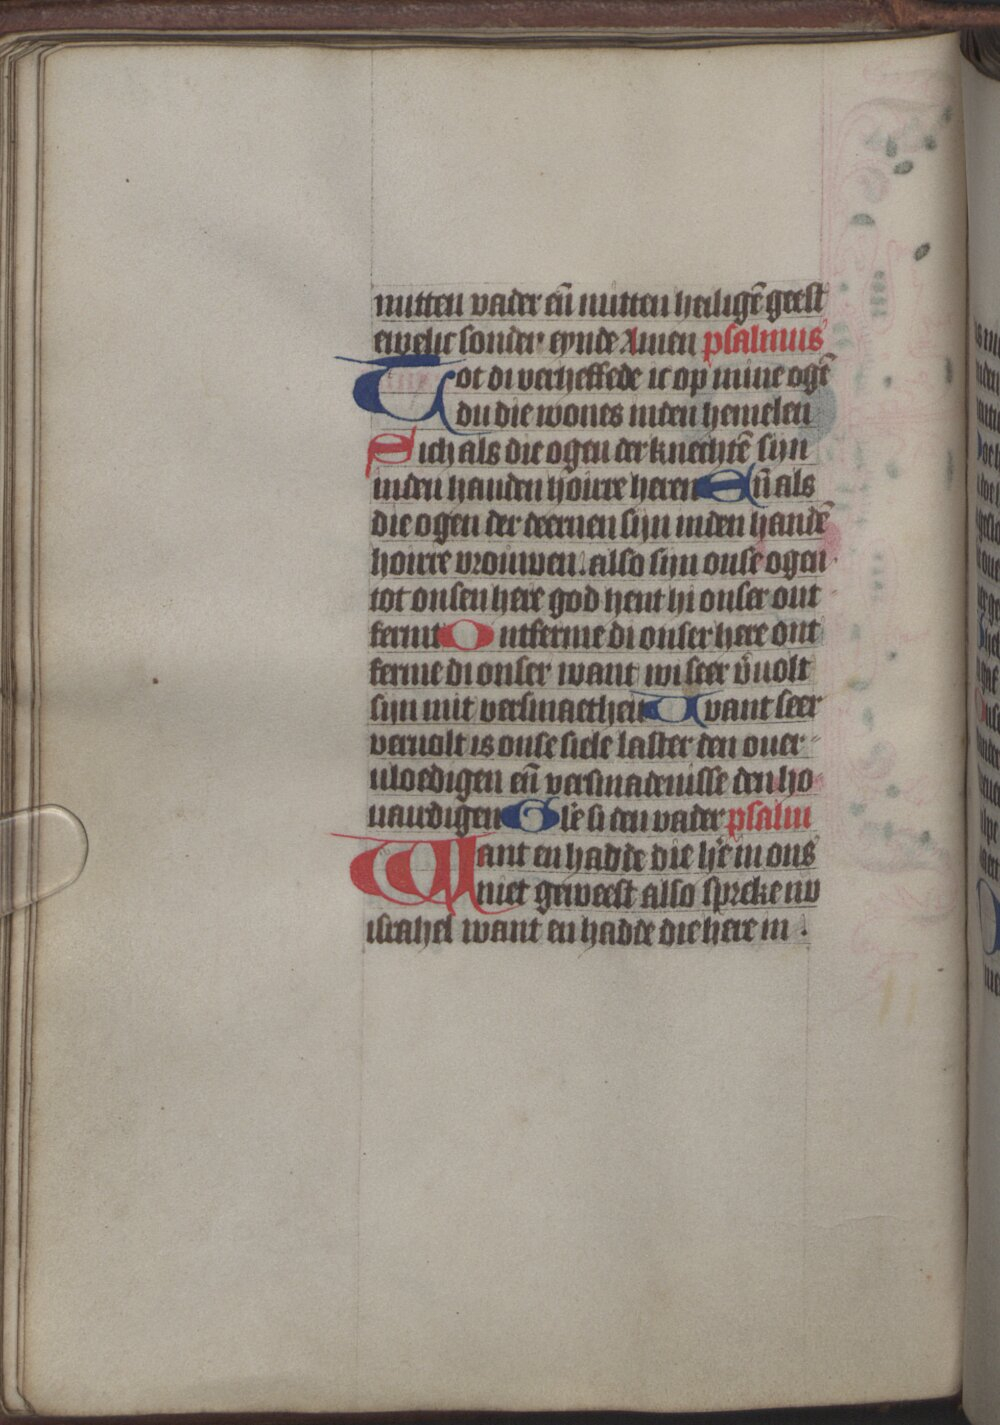 mitten vader en̄ mitten heilige̅ geest
ewelic sonder eynde Amen psalmus
Tot di verheffede ic op mine oge̅
du die wones inden hemelen
Sich als die ogen der knechte̅ sijn
inden handen hoirre heren En̄ als
die ogen der deernen sijn inden hande̅
hoirre vrouwen. also sijn onse ogen
tot onsen here god hent hi onser ont
fermt Ontferme di onser here ont
ferme di onser want wi seer v̾uolt
sijn mit versmaetheit Want seer
veruolt is onse siele laster den ouer-
uloedigen en̄ versmadenisse den ho
uaerdigen Gle̅ si den vader psalm
Want en hadde die he̅ in ons
niet geweest also spreke nv
israhel want en hadde die here in .